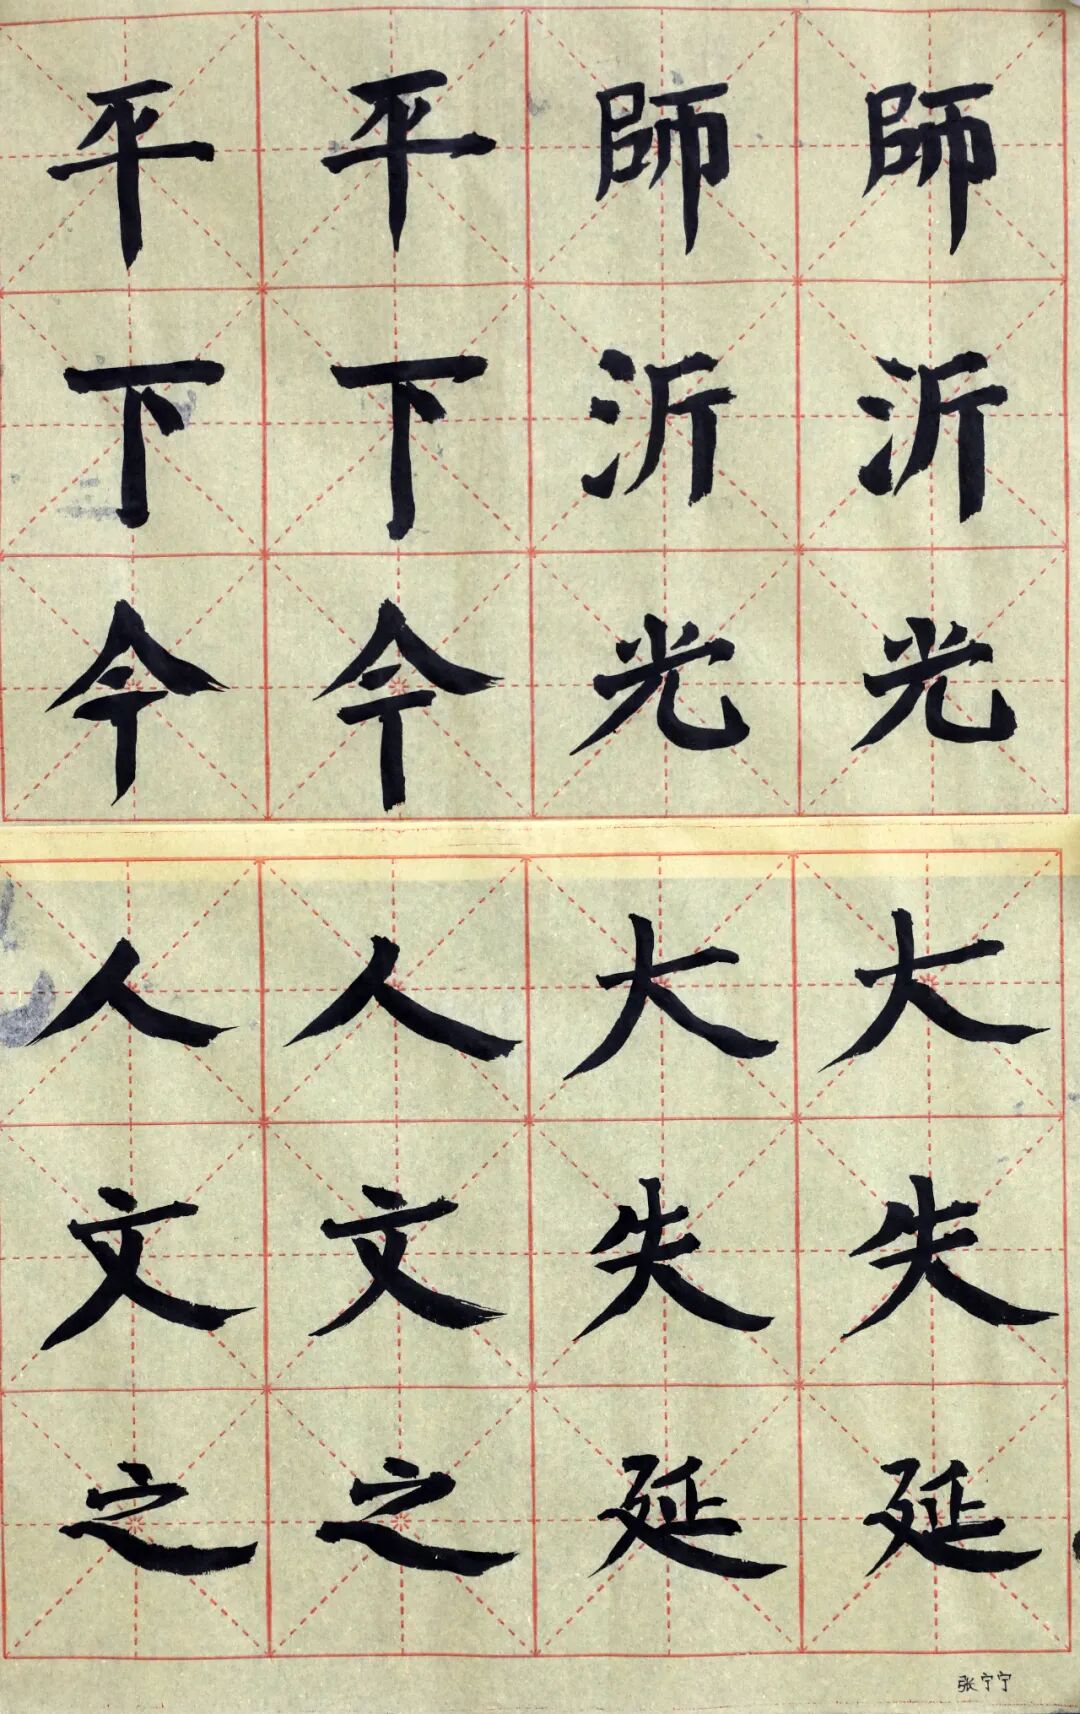 平平師師
下下沂沂
今今光光
人人大大
文文失失
之之延延
张宁宁